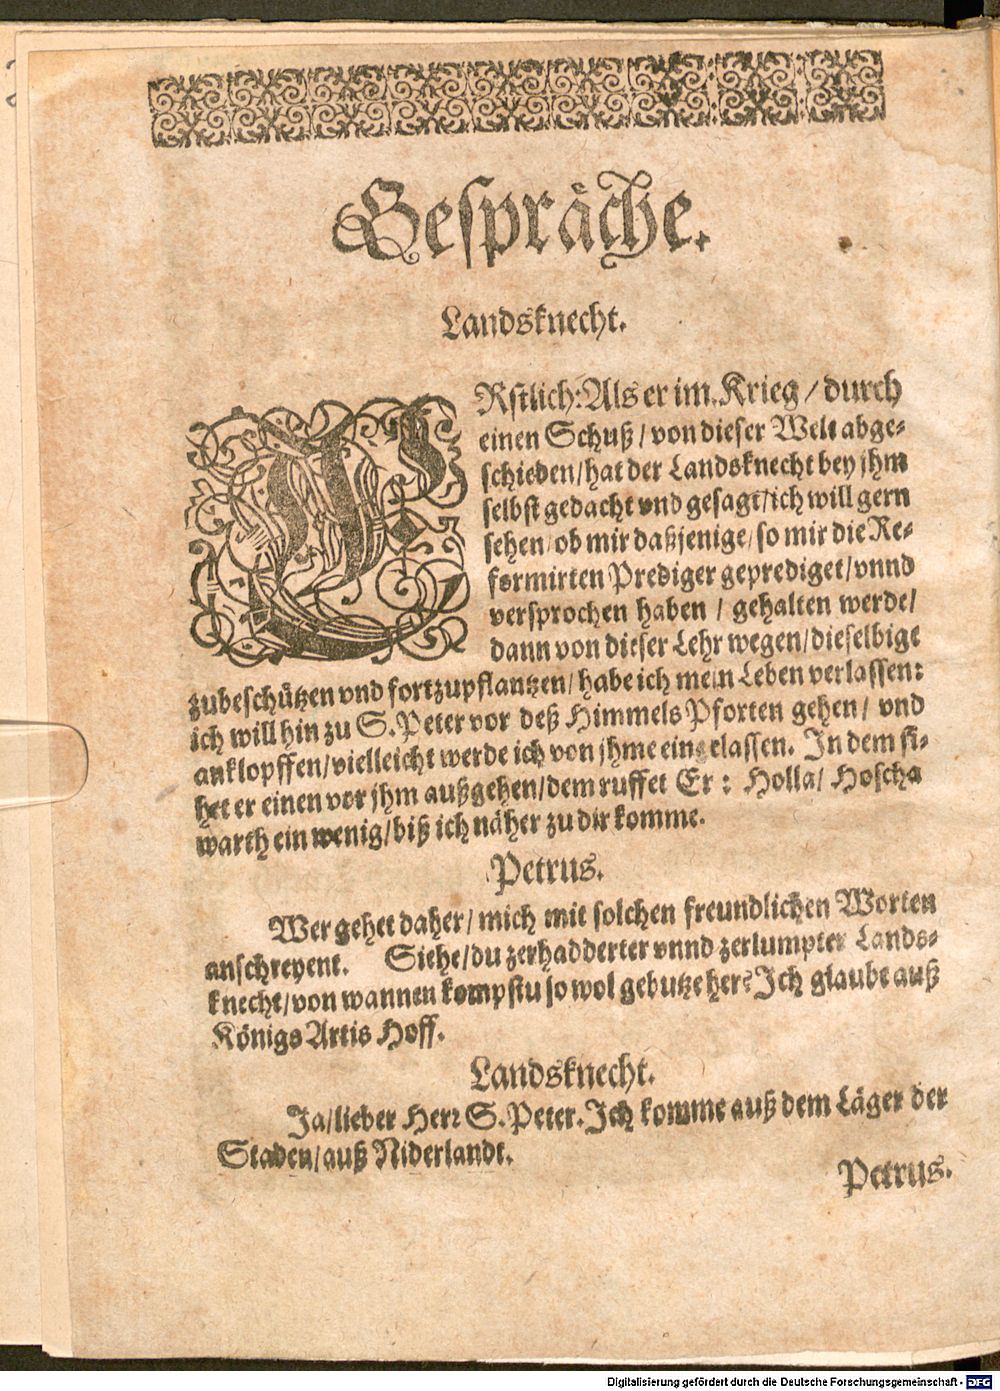 Gespräche.
Landsknecht.
ERstlich: Als er im Krieg / durch
einen Schuß / von dieser Welt abge-
schieden / hat der Landsknecht bey jhm
selbst gedacht vnd gesagt / ich will gern
sehen / ob mir daßjenige / so mir die Re-
formirten Prediger geprediget / vnnd
versprochen haben / gehalten werde /
dann von dieser Lehr wegen / dieselbige
zubeschützen vnd fortzupflantzen / habe ich mein Leben verlassen:
ich will hin zu S. Peter vor deß Himmels Pforten gehen / vnd
anklopffen / vielleicht werde ich von jhme eingelassen. In dem si-
het er einen vor jhm außgehen / dem ruffet Er: Holla / Hoscha
warth ein wenig / biß ich näher zu dir komme.
Petrus.
Wer gehet daher / mich mit solchen freundlichen Worten
anschreyent. Siehe / du zerhadderter vnnd zerlumpter Lands-
knecht / von wannen kompstu so wol gebutzt her? Ich glaube auß
Königs Artis Hoff.
Landsknecht.
Ja / lieber Herr S. Peter. Ich komme auß dem Läger der
Staden / auß Niderlandt.
Petrus.
Digitalisierung gefördert durch die Deutsche Forschungsgemeinschaft - DFG